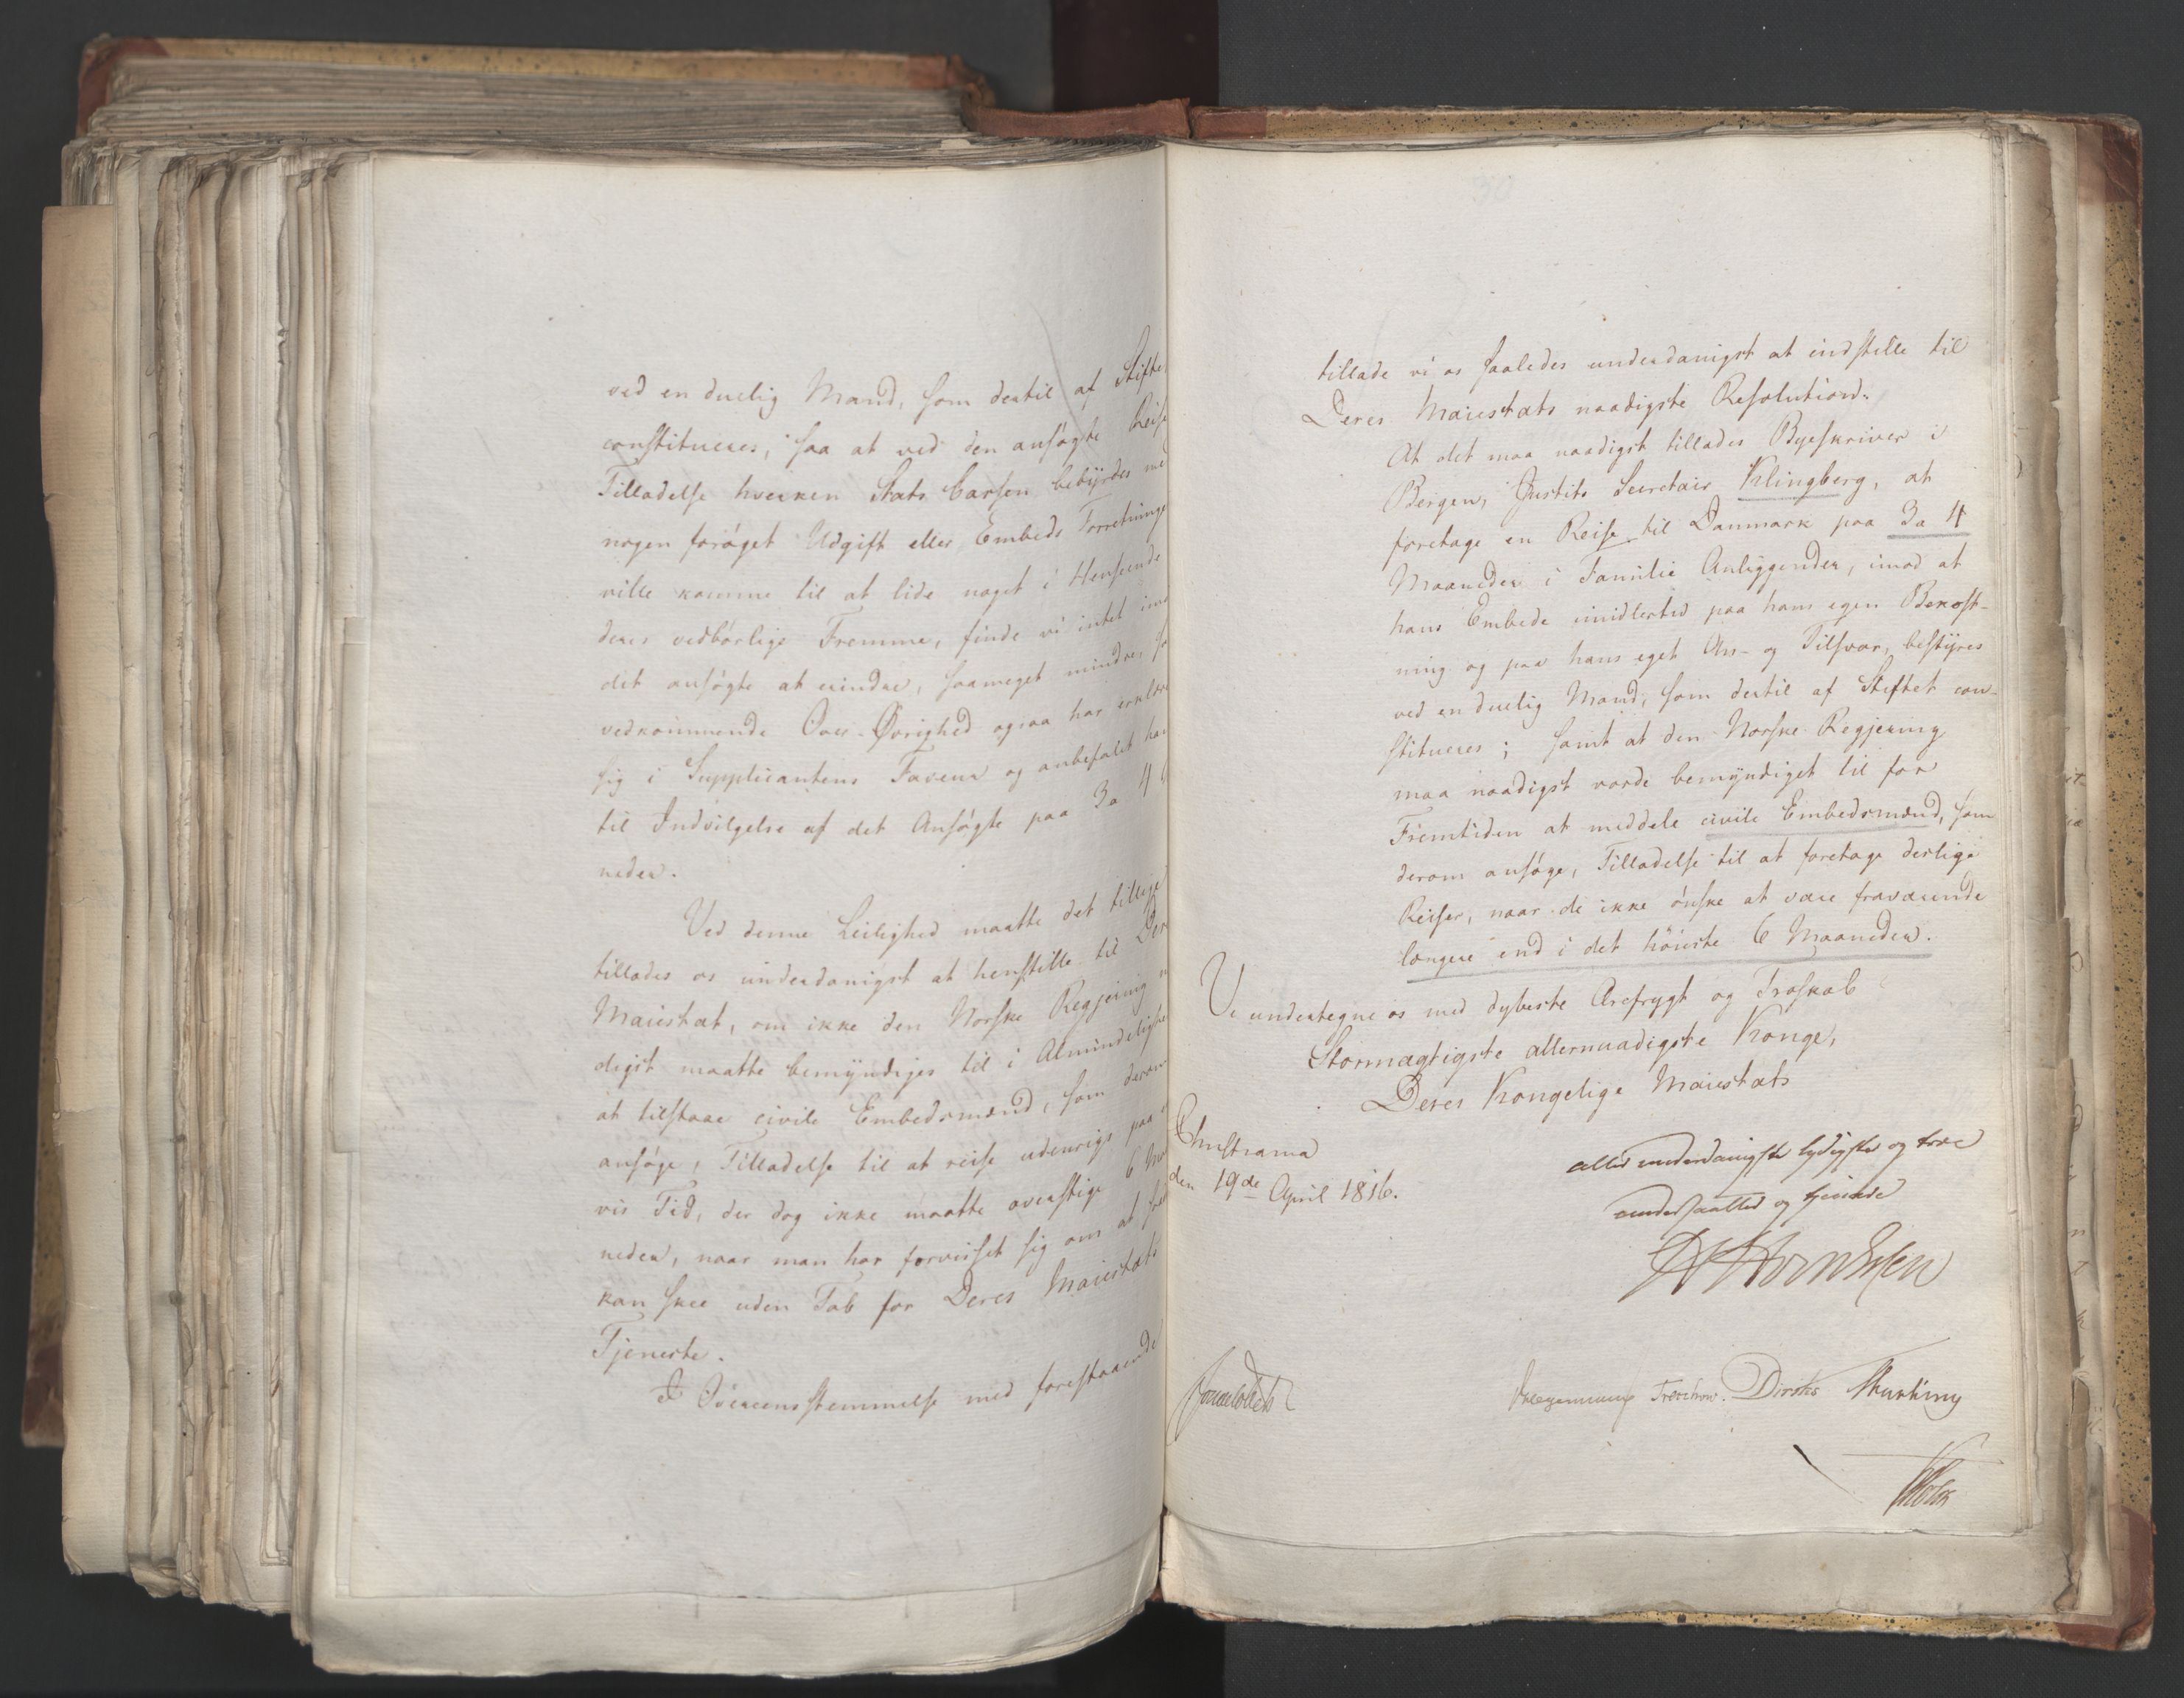 ved en duelig Mand, som dertil af Stifte
constitueres, saa at ved den ansøgte Reise
Tilladelse hverken Stats Cassen bebyrdes med
nogen forøget Udgift eller Embeds Forretninge
ville komme til at lide noget i Henseende
deres vedbørlige Fremme, finde vi intet imo
det ansøgte at erindre, saameget mindre, so
vedkommende Over-Øvrighed ogsaa har erklære
sig i Supplicantens Faveur og anbefalet ham
til Indvilgelse af det Ansøgte paa 3 a 4
neder.
Ved denne Leilighed maatte det tillige
tillades os underdanigst at henstille til Der
Maiestæt, om ikke den Norske Regjering
digst maatte bemyndiges til i Almindelighe
at tilstaae civile Embedsmænd, som derom
ansøge, Tilladelse til at reise udenrigs paa
vis Tid, der dog ikke maatte overstige 6 Ma
neder, naar man har forvisset sig om at
kan skee uden Tab for Deres Maiestæts
Tjeneste.
I Overeensstemmelse med forestaaende
tillade vi os saaledes underdanigst at indstille til
Deres Maiestæts naadigste Resolution:
At det maa naadigst tillades Byeskriver i
Bergen, Justits Secretair Klingberg, at
foretage en Reise til Danmark paa 3 a 4
Maaneder i Familie Anliggender, imod at
hans Embede imidlertid paa hans egen Bekost-
ning og paa hans eget An- og Tilsvar, bestyres
ved en duelig Mand, som dertil af Stiftet con-
stitueres; samt at den Norske Regjering
maa naadigst vorde bemyndiget til for
Fremtiden at meddele civile Embedsmænd, som
derom ansøge, Tilladelse til at foretage deslige
Reiser, naar de ikke ønske at være fraværende
længere end i det høieste 6 Maaneder.
Vi undertegne os med dybeste Ærefrygt og Troskab
Stormægtigste allernaadigste Konge,
Deres Kongelige Maiestæts
Christiania
den 19de April 1816.
allerunderdanigste lydigste og troe
undersaatter og tjenere
Jonas Collett
Hegermann Treschow. Diriks Motzfeldt